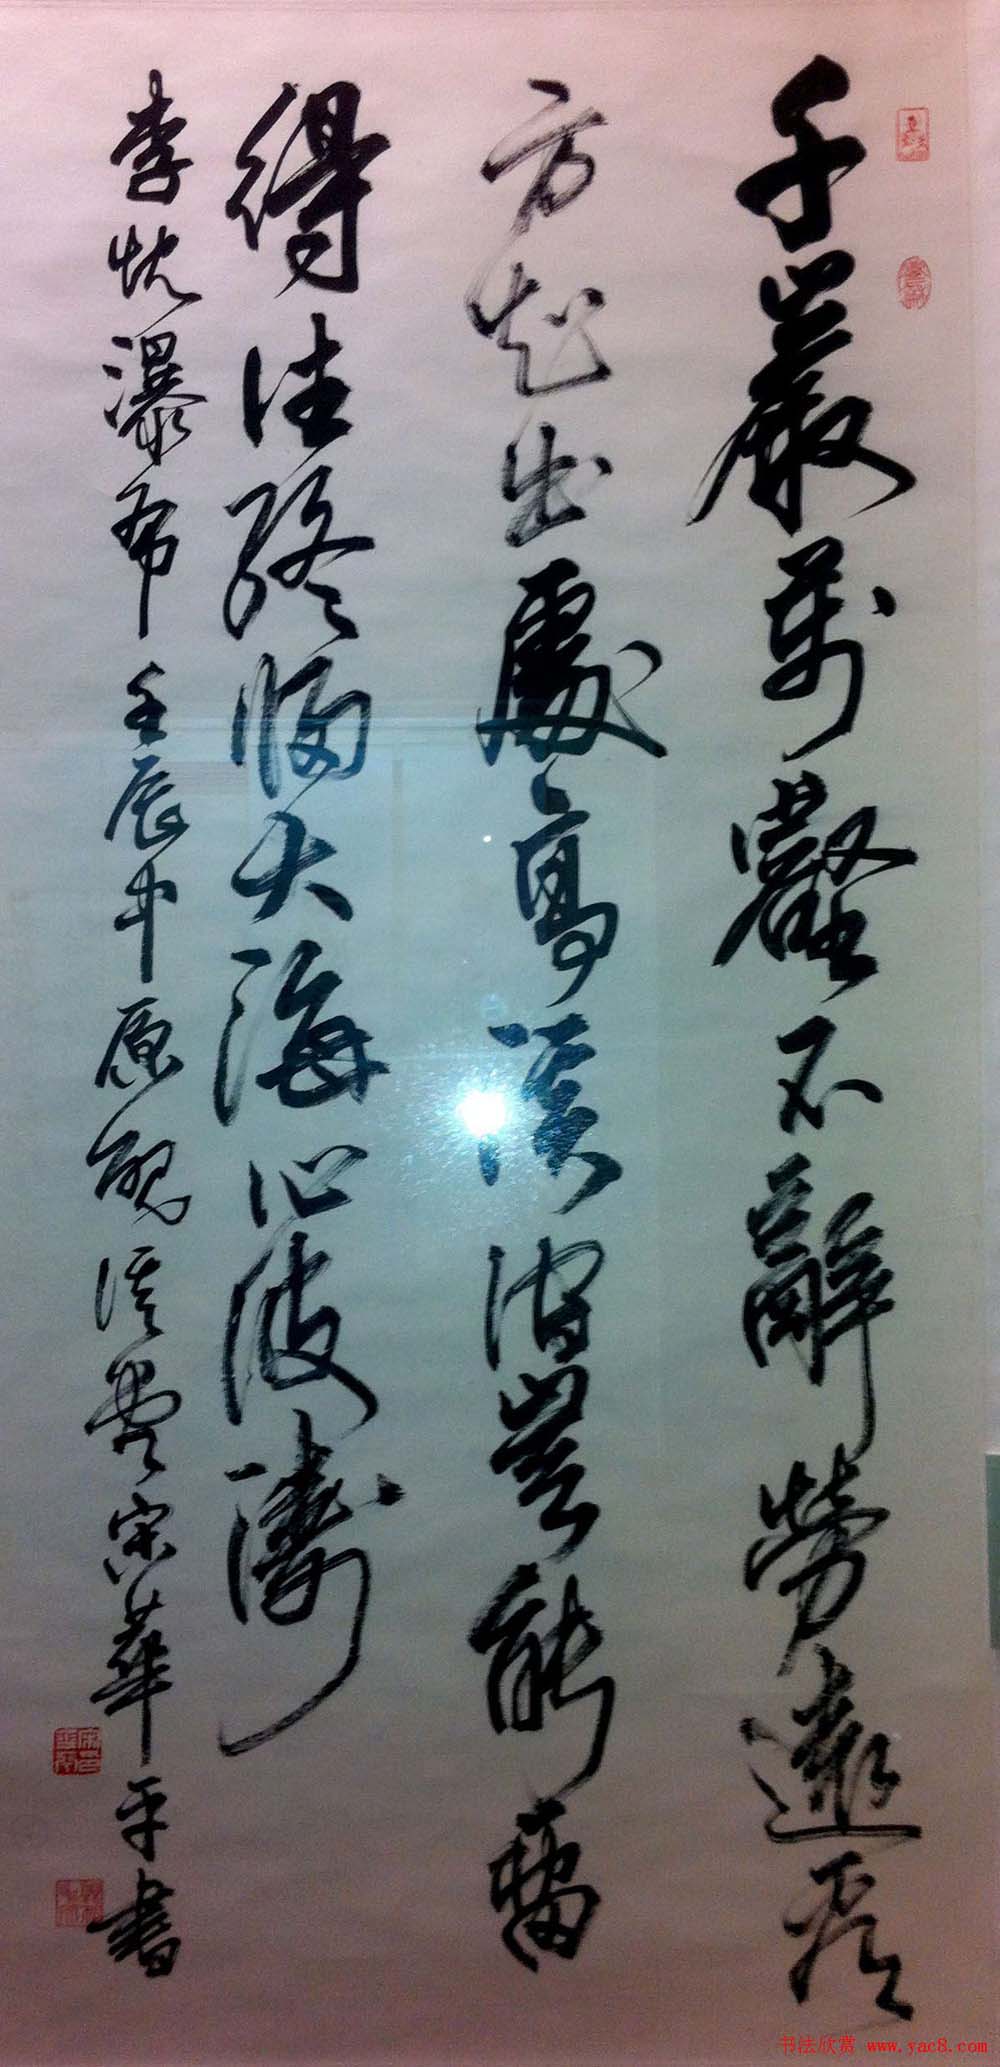 千巖萬壑不辭勞遠看
方知出處高溪澗豈能留
得住終歸大海作波濤
李忱瀑布壬辰中原宋華平書
书法欣赏 www.yac8.com